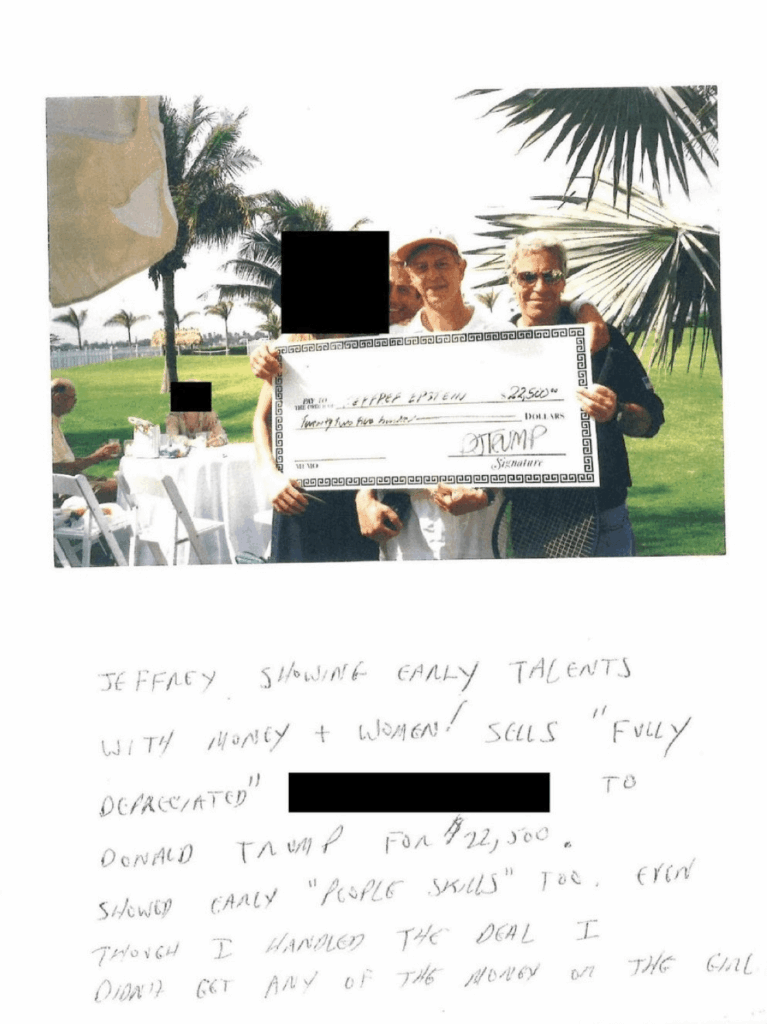 PAY TO
THE ORDER OF JEFFREY EPSTEIN $ 22,500
Twenty two five hundred DOLLARS
DJTRUMP
MEMO Signature
JEFFREY SHOWING EARLY TALENTS
WITH MONEY + WOMEN! SELLS "FULLY
DEPRECIATED" TO
DONALD TRUMP FOR $22,500.
SHOWED EARLY "PEOPLE SKILLS" TOO. EVEN
THOUGH I HANDLED THE DEAL I
DIDN'T GET ANY OF THE MONEY OR THE GIRL